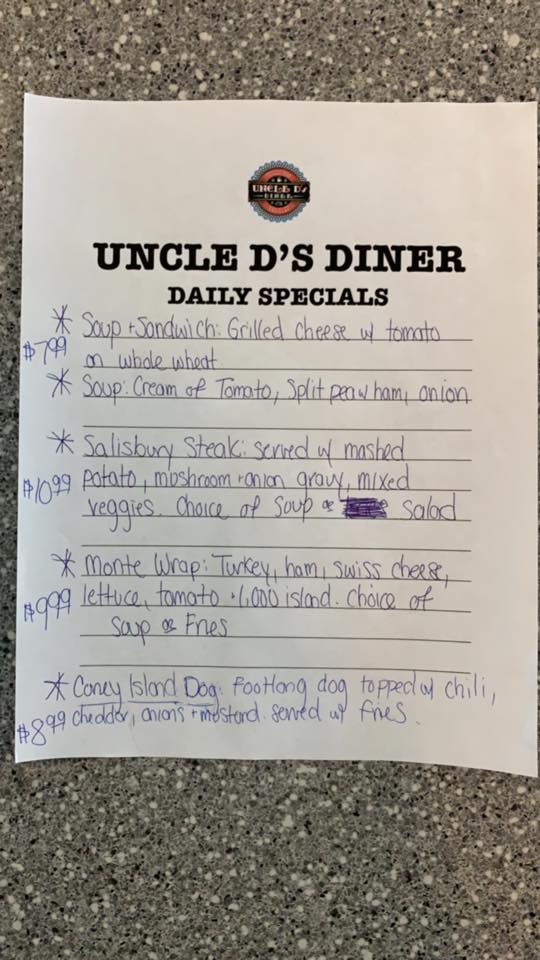 UNCLE D'S
DINER
UNCLE D'S DINER
DAILY SPECIALS
* Soup + Sandwich: Grilled cheese w/ tomato
$7.99 on whole wheat
* Soup: Cream of Tomato, Split pea w ham, onion
* Salisbury Steak: served w/ mashed
$10.99 potato, mushroom + onion gravy, mixed
veggies. Choice of Soup or Salad
* Monte Wrap: Turkey, ham, swiss cheese,
$9.99 lettuce, tomato + 1,000 island. Choice of
Soup or Fries
* Coney Island Dog: Footlong dog topped w/ chili,
$8.99 cheddar, onions + mustard. Served w/ fries.